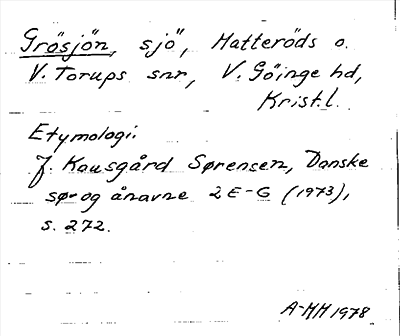 Grösjön, sjö, Hatteröds o.
V. Torups snr, V. Göinge hd,
Krist.l.
Etymologi:
J. Kousgård Sørensen, Danske
sø- og ånavne 2 E-G (1973),
s. 272.
A-MM 1978